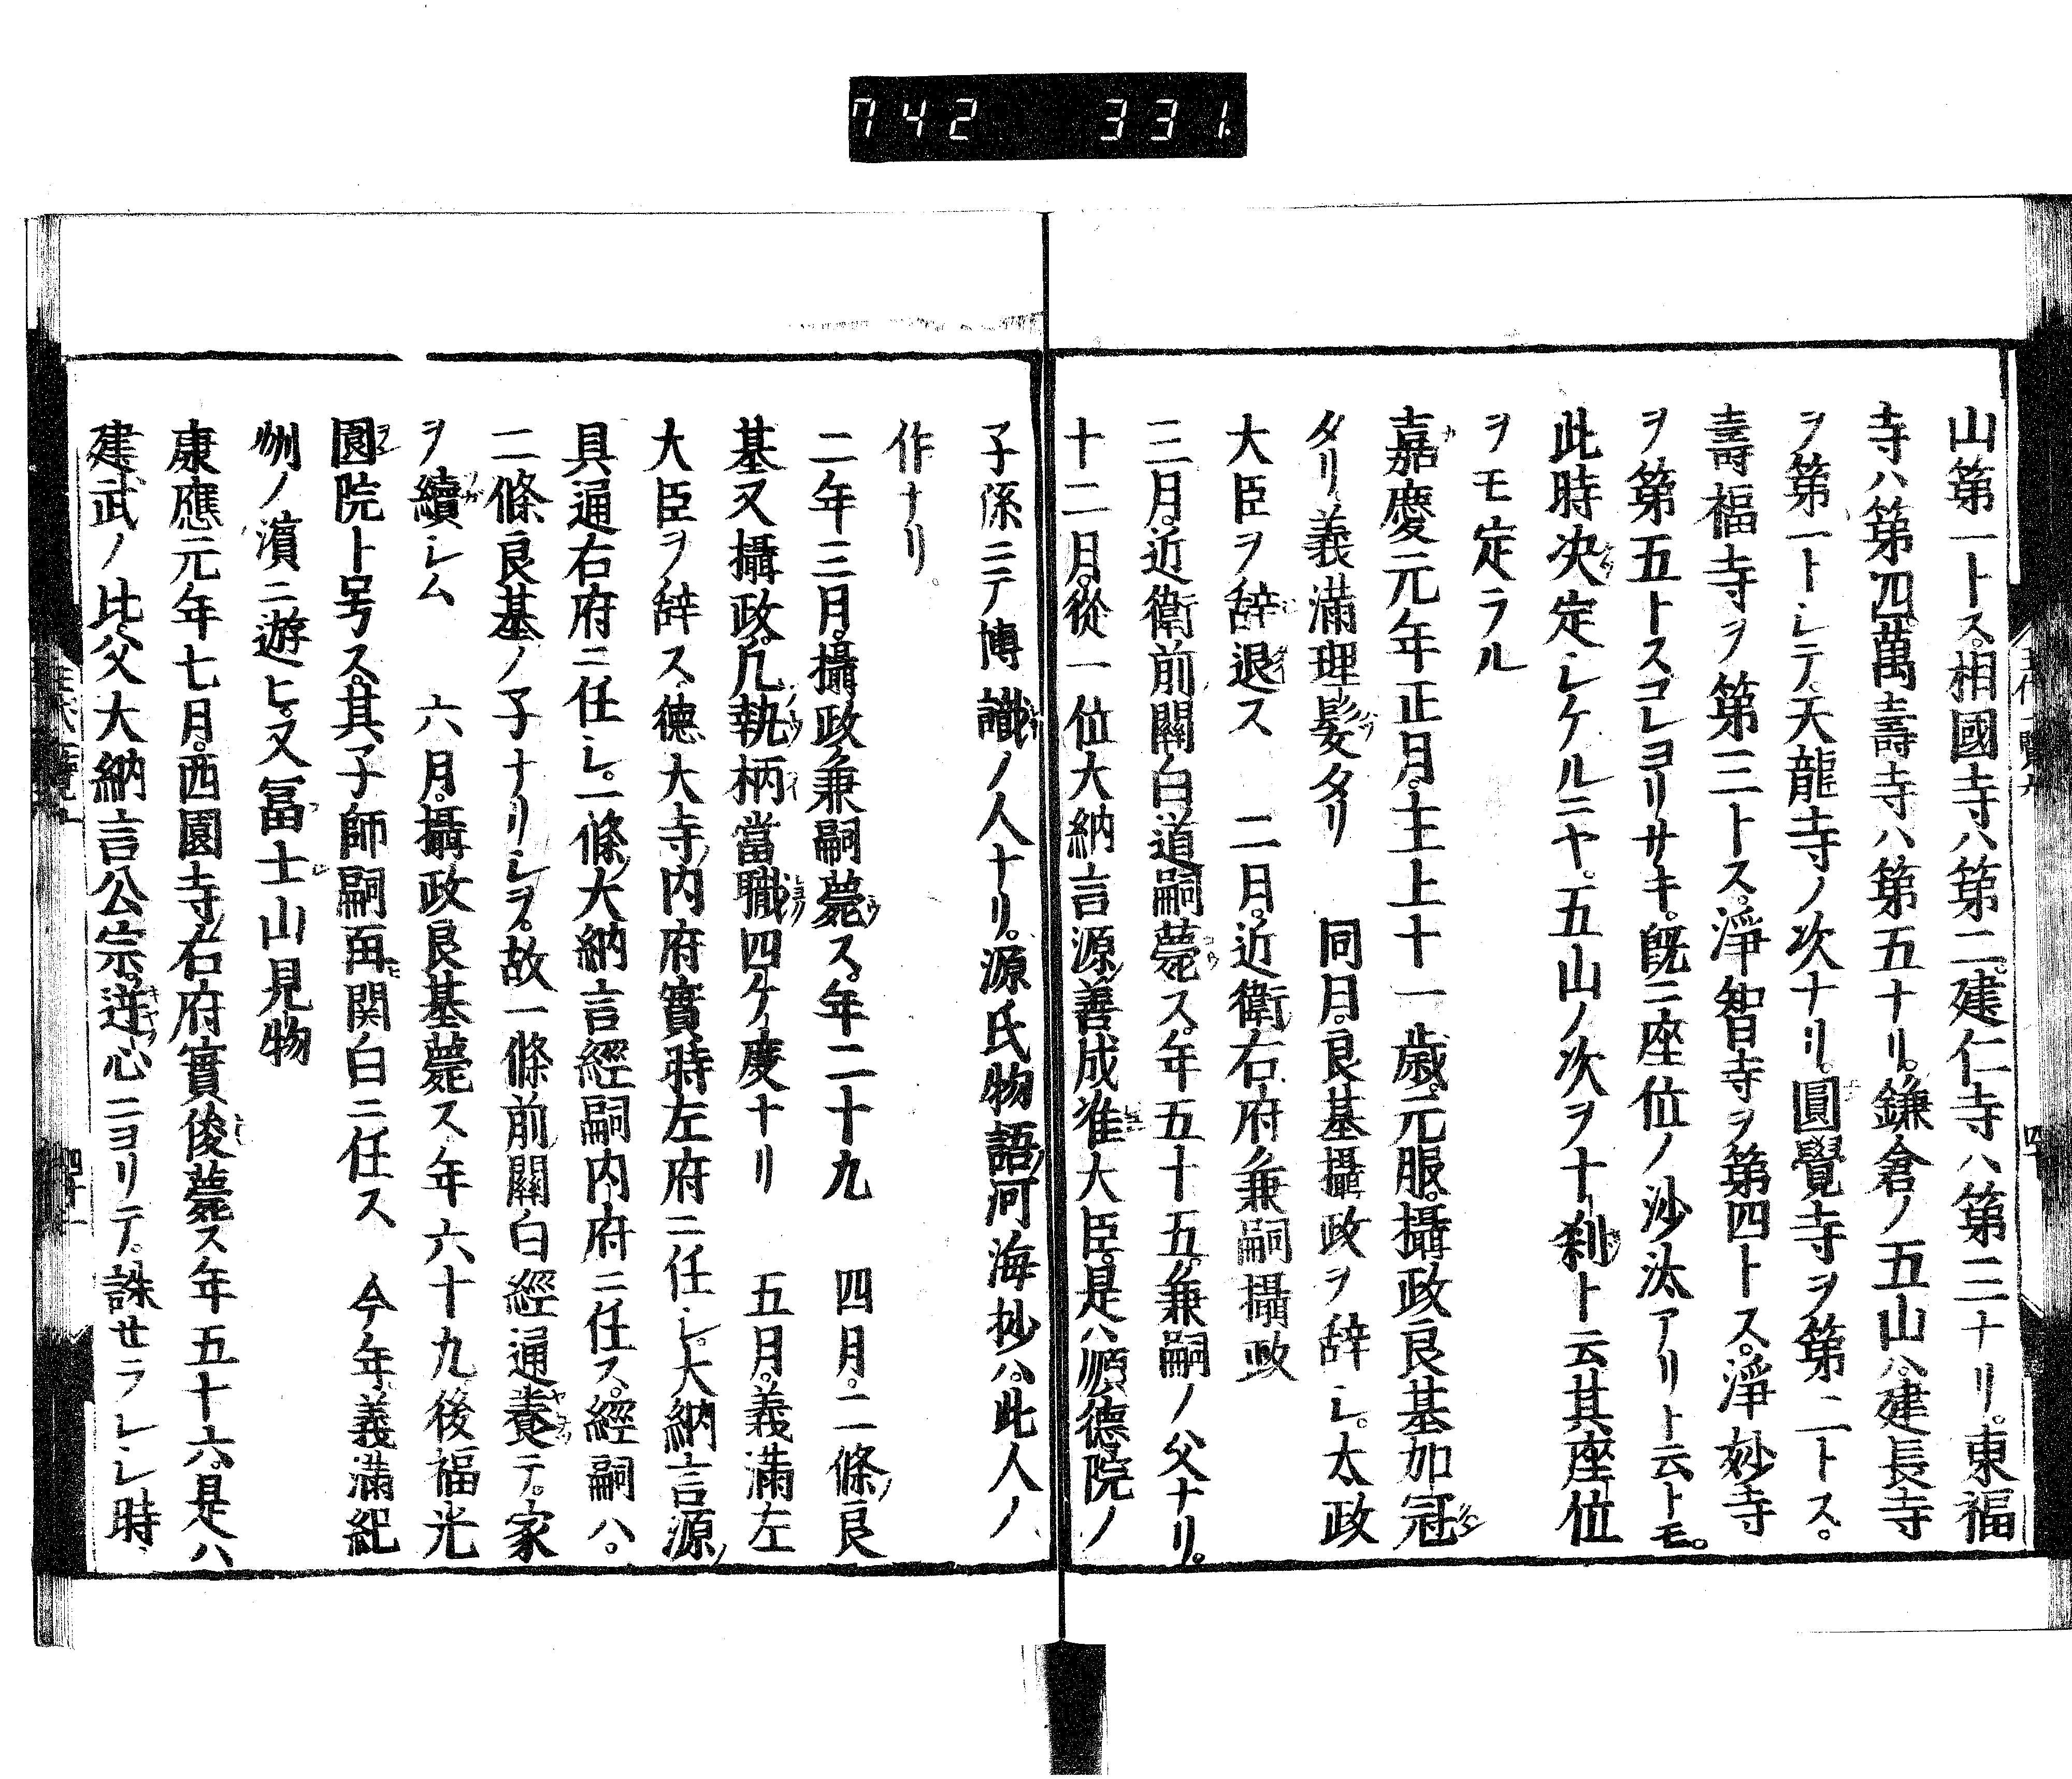 742 331
山第一トス。相國寺ハ第二。建仁寺ハ第三ナリ。東福
寺ハ第四。萬壽寺ハ第五ナリ。鎌倉ノ五山ハ。建長寺
ヲ第一トシテ。天龍寺ノ次ナリ。圓覺寺ヲ第二トス。
壽福寺ヲ第三トス。淨智寺ヲ第四トス。淨妙寺
ヲ第五トスコレヨリサキ。既ニ座位ノ沙汰アリト云トモ。
此時決定シケルニヤ。五山ノ次ヲ十刹ト云其座位
ヲモ定ラル
嘉慶元年正月。主上十一歳。元服。攝政良基加冠
タリ。義滿理髮タリ　同月。良基攝政ヲ辞シ。太政
大臣ヲ辞退ス　二月。近衛右府兼嗣攝政
三月。近衛前關白道嗣薨ス。年五十五。兼嗣ノ父ナリ。
十二月。從一位大納言源善成准大臣。是ハ順德院ノ
子孫ニテ博識ノ人ナリ。源氏物語河海抄ハ。此人ノ
作ナリ。
二年三月。攝政兼嗣薨ス。年二十九　四月。二條良
基又攝政。凡執柄當職四ケ度ナリ　五月。義滿左
大臣ヲ辞ス。德大寺内府實時左府ニ任シ。大納言源
具通右府ニ任シ。一條大納言經嗣内府ニ任ス。經嗣ハ。
二條良基ノ子ナリシヲ。故一條前關白經通養テ。家
ヲ續シム　六月。攝政良基薨ス年六十九後福光
園院ト号ス。其子師嗣再関白ニ任ス　今年。義滿紀
州ノ濵ニ遊ヒ。又冨士山見物
康應元年七月。西園寺右府實俊薨ス年五十六。是ハ
建武ノ比。父大納言公宗。逆心ニヨリテ。誅せラレシ時